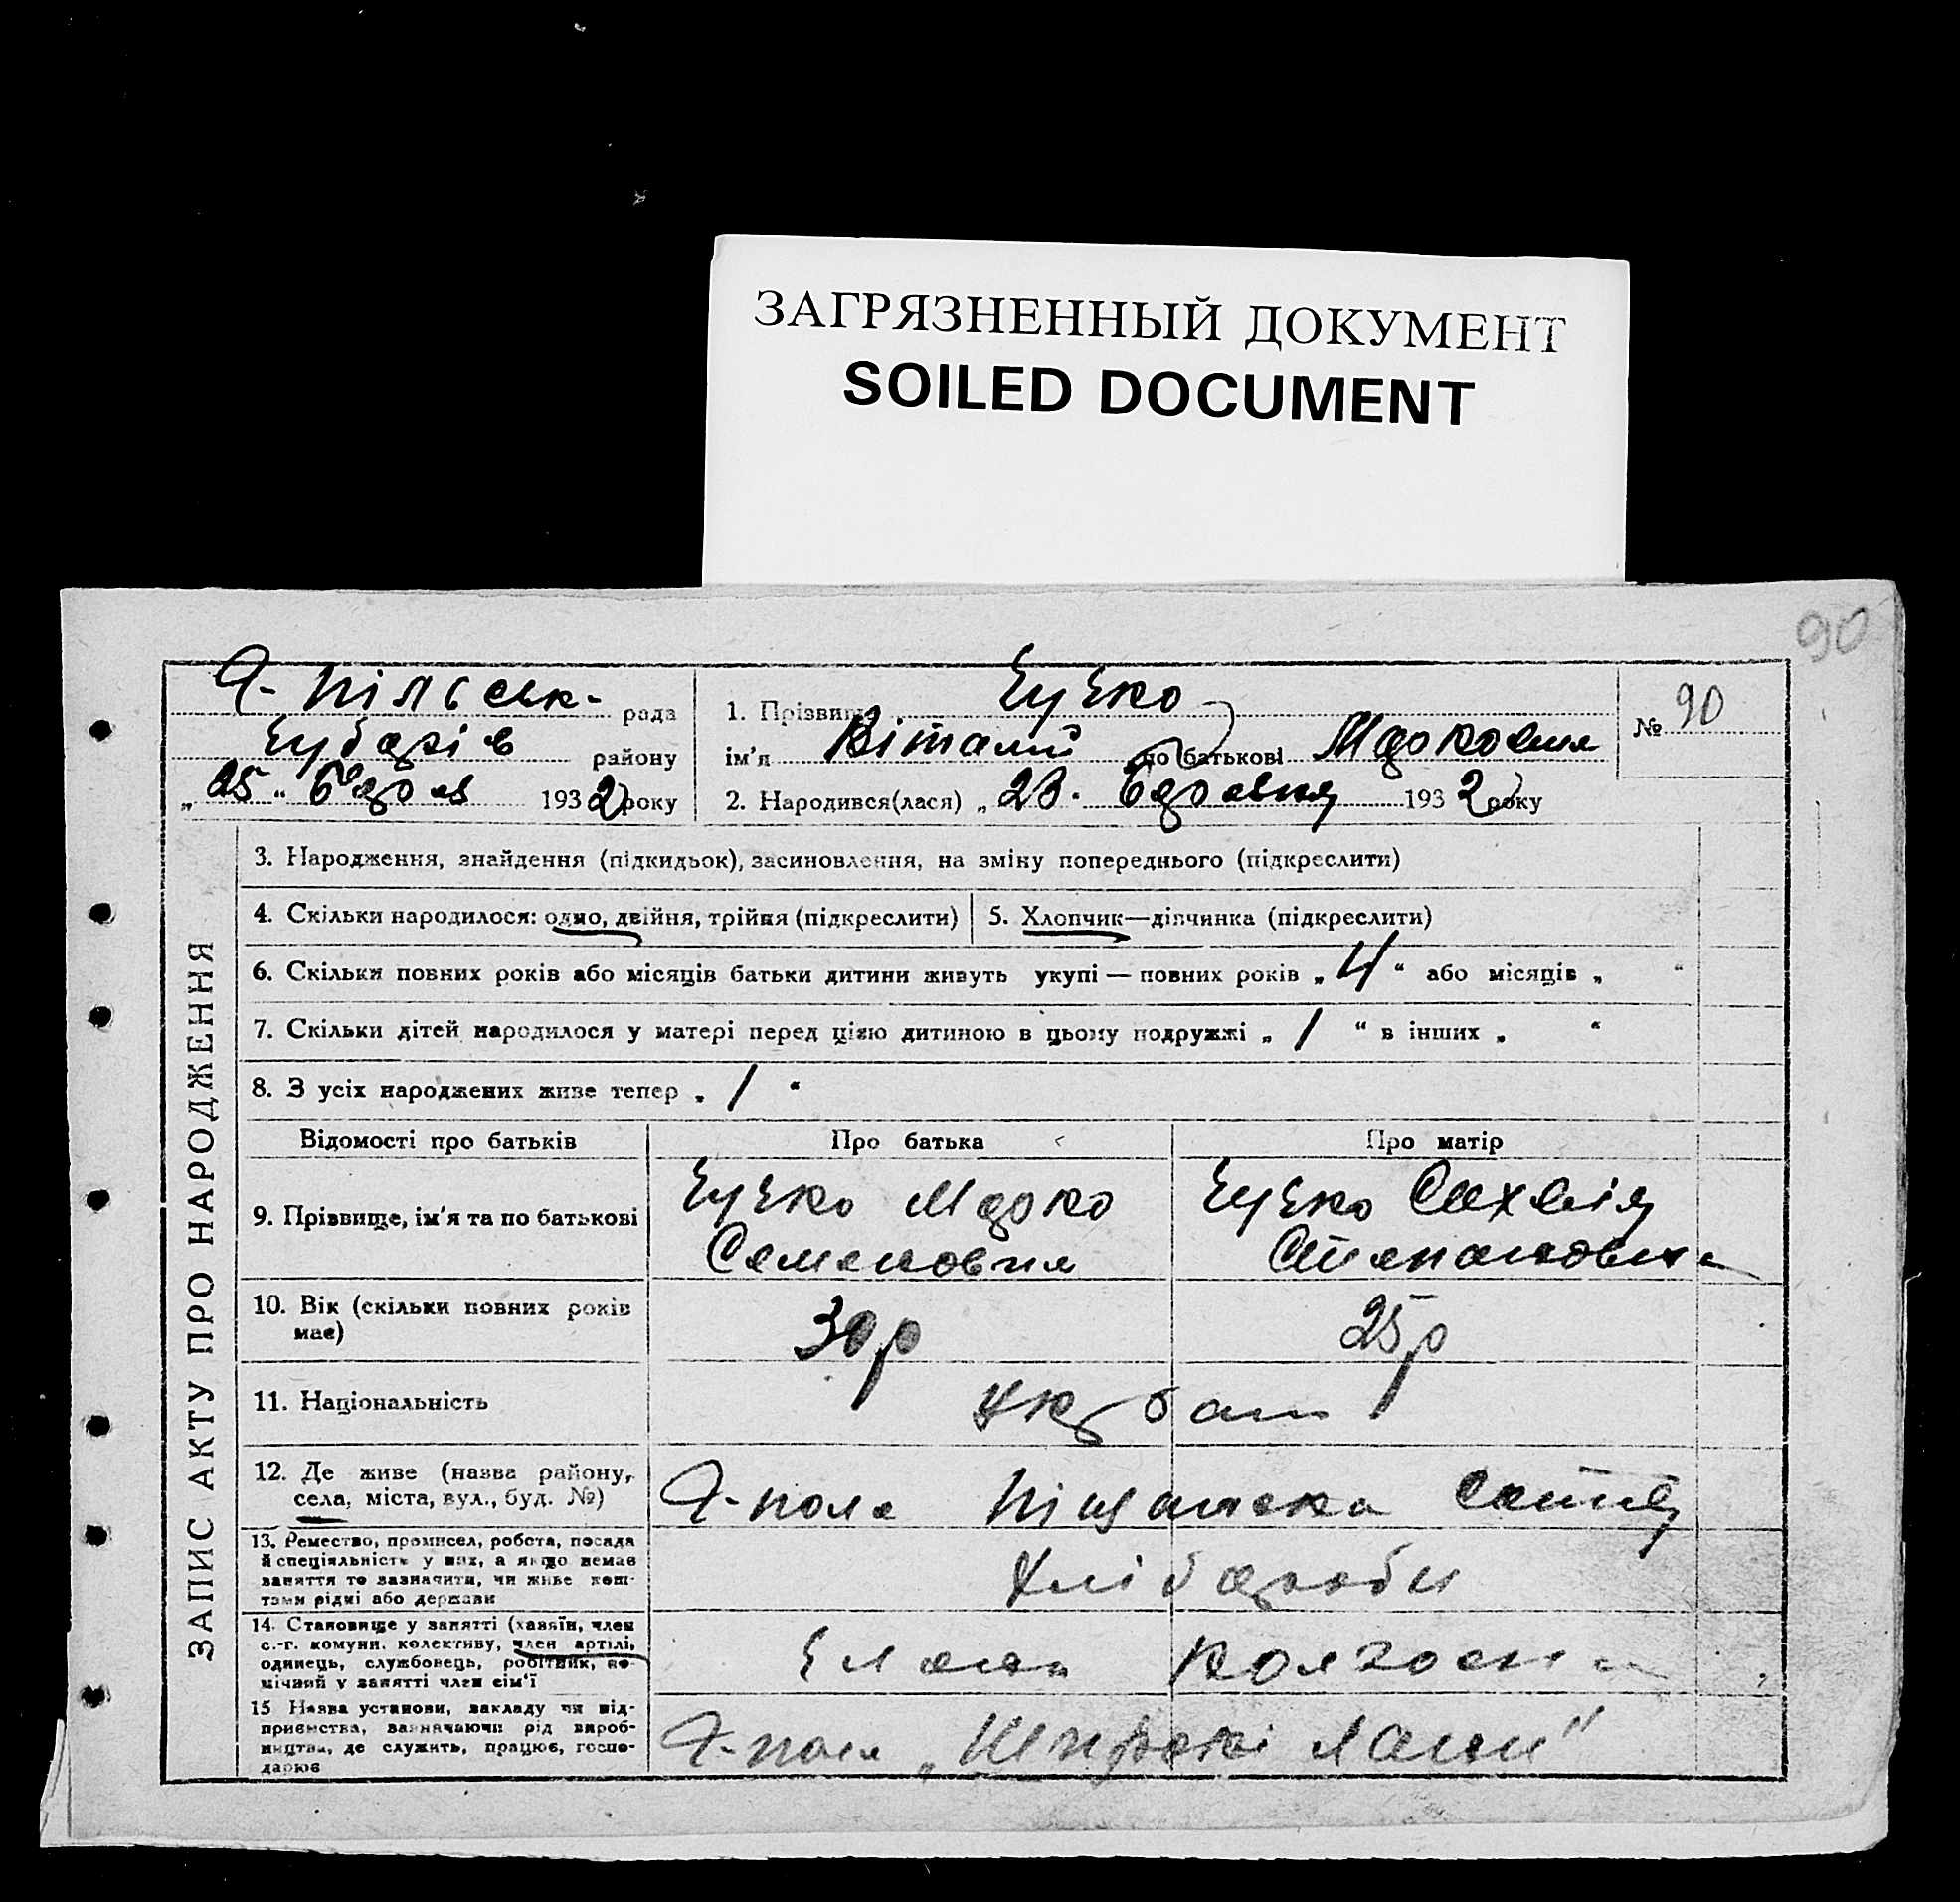 ЗАГРЯЗНЕННЫЙ ДОКУМЕНТ
SOILED DOCUMENT
90
рада
району
„25“ 1932 року
1. Прізвище
ім'я Віталий по батькові Маркович
2. Народився(лася) „23. 1932 року
№ 90
ЗАПИС АКТУ ПРО НАРОДЖЕННЯ
3. Народження, знайдення (підкидьок), засиновлення, на зміну попереднього (підкреслити)
4. Скільки народилося: одно, двійня, трійня (підкреслити)
5. Хлопчик—дівчинка (підкреслити)
6. Скільки повних років або місяців батьки дитини живуть укупі — повних років „4“ або місяців „ “
7. Скільки дітей народилося у матері перед цією дитиною в цьому подружжі „1“ в інших „ “
8. З усіх народжених живе тепер „1“
Відомості про батьків
Про батька
Про матір
9. Прізвище, ім'я та по батькові
Марко
Семенович
Степановна
10. Вік (скільки повних років
має)
30р
25р
11. Національність
12. Де живе (назва району,
села, міста, вул., буд. №)
13. Ремество, промисел, робота, посада
й спеціяльність у них, а якщо немає
заняття то зазначити, чи живе кош-
тами рідні або держави
Хлібароби
14. Становище у занятті (хазяїн, член
с.-г. комуни, колективу, член артілі,
одинець, службовець, робітник, по-
мічний у занятті член сім'ї
Члени
15 Назва установи, закладу чи під-
приємства, зазначаючи рід вироб-
ництва, де служить, працює, госпо-
дарює
„Широкі Лани“